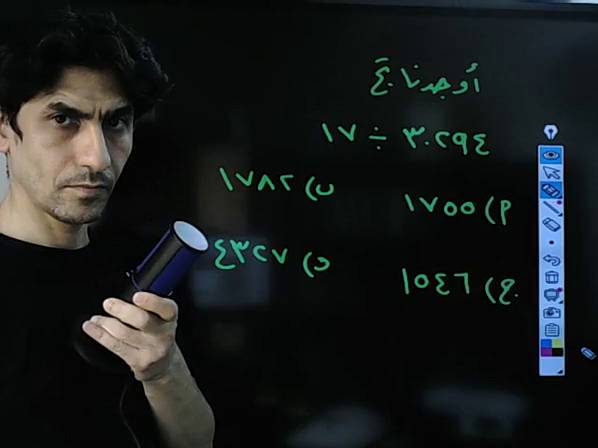 أوجد ناتج
٣٠٢٩٤ ÷ ١٧
أ) ١٧٥٥ ب) ١٧٨٢
ج) ١٥٤٦ د) ٤٣٢٧